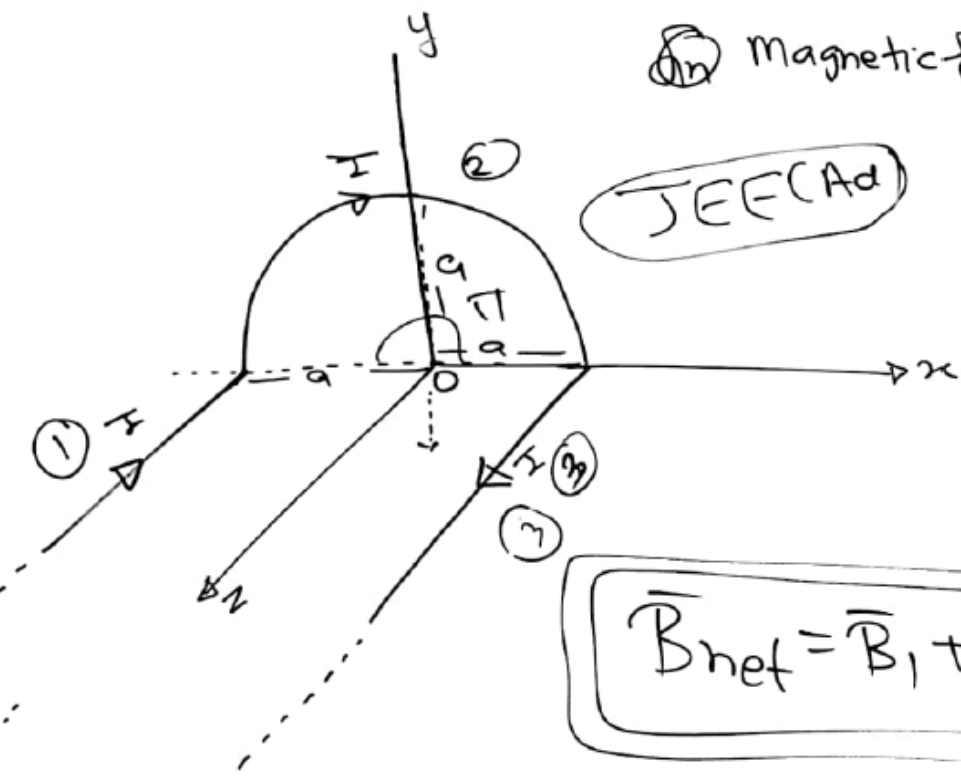 y
Qn Magnetic f
JEE(Ad
I
2
a
π
a
a
O
x
1
I
I
3
3
z
B̅net = B̅1 +